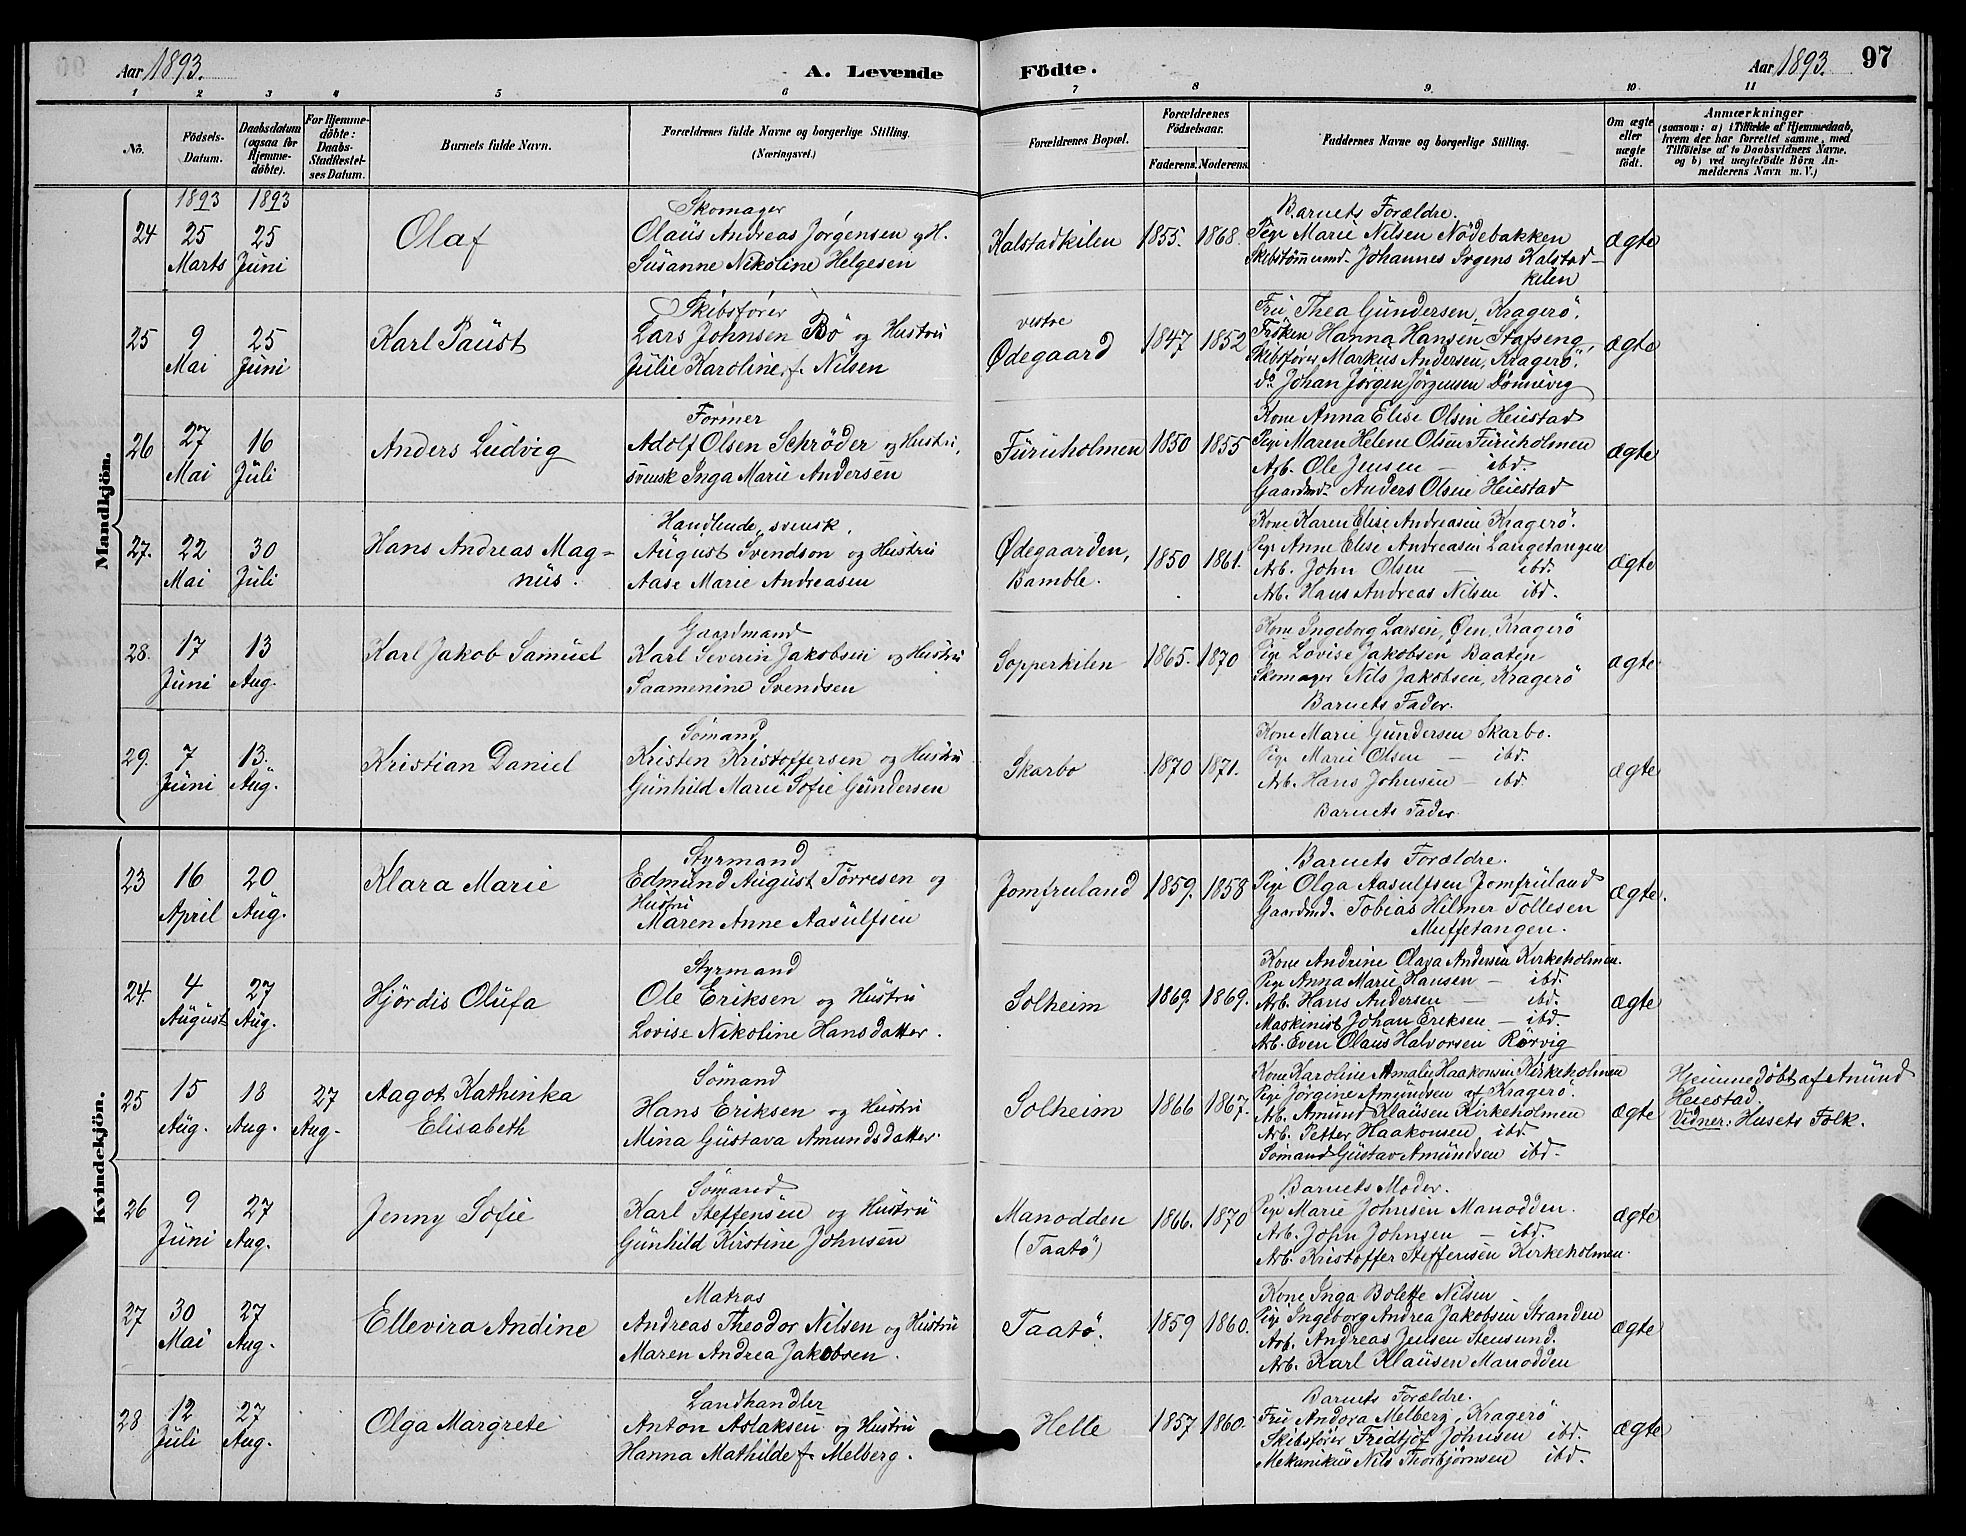 Aar 1893.
A. Levende
Födte.
Aar 1893.
97
1 2 3 4 5 6 7 8 9. 10. 11
No.
Födsels-
Datum.
Daabsdatum
(ogsaa for
Hjemme-
döbte).
For Hjemme-
döbte:
Daabs-
Stadfæstel-
ses Datum.
Barnets fulde Navn.
Forældrenes fulde Navne og borgerlige Stilling.
(Næringsvei.)
Forældrenes Bopæl.
Forældrenes
Födselsaar.
Faderens. Moderens.
Faddernes Navne og borgerlige Stilling.
Om ægte
eller
uægte
födt.
Anmærkninger
(saasom: a) i Tilfælde af Hjemmedaab,
hvem der har forrettet samme, med
Tilföielse af to Daabsvidners Navne,
og b) ved uægtefödte Börn An-
melderens Navn m. V.)
Mandkjön.
1893 1893
24
25
Marts
25
Juni
Olaf
Skomager
Olaus Andreas Jørgensen og H.
Susanne Nikoline Helgesen
Kalstadkilen
1855. 1868.
Barnets Forældre.
Pige Marie Nilsen Nödebakken
Skibstømmermd. Johannes Kalstad-
kilen
ægte
25
9
Mai
25
Juni
Karl Paust
Skibsfører
Lars Johnsen Bö og Hustru
Julie Karoline f. Nilsen
vestre
Ødegaard
1847 1852
Fru Thea Gundersen, Kragerö.
Fröken Hanna Hansen Stafseng,
Skibsfører Markus Andersen, Kragerö.
do. Johan Jörgen Jörgensen Dönnevig
ægte
26
27
Mai
16
Juli
Anders Ludvig
Former
Adolf Olsen Schrøder og Hustru,
svensk Inga Marie Andersen
Furuholmen
1850 1855
Kone Anna Elise Olsen Heiestad
Pige Maren Helene Olsen Furuholmen
Arb. Ole Jensen — ibd.
Gaardmd. Anders Olsen Heiestad
ægte
27.
22
Mai
30
Juli
Hans Andreas Mag-
nus.
Handlende, svensk,
August Svendson og Hustru
Aase Marie Andreasen
Ødegaarden,
Bamble.
1850 1861.
Kone Karen Elise Andreasen Kragerö.
Pige Anne Elise Andreasen Langetangen
Arb. John Olsen — ibd.
Arb. Hans Andreas Nilsen ibd.
ægte
28.
17
Juni
13
Aug.
Karl Jakob Samuel
Gaardmand
Karl Severin Jakobsen og Hustru
Saamenine Svendsen
Sopperkilen
1865. 1870
Kone Ingeborg Larsen, Öen, Kragerö
Pige Lovise Jakobsen Baaten
Skomager Nils Jakobsen, Kragerö
Barnets Fader.
ægte
29.
7
Juni
13.
Aug.
Kristian Daniel
Sömand
Kristen Kristoffersen og Hustru
Gunhild Marie Sofie Gundersen
Skarbo
1870 1871.
Kone Marie Gundersen Skarbo.
Pige Marie Olsen — ibd.
Arb. Hans Johnsen — ibd.
Barnets Fader.
ægte
Kvindekjön.
23
16
April
20
Aug.
Klara Marie
Styrmand
Edmund August Törresen og
Hustru
Maren Anne Aasulfsen
Jomfruland
1859. 1858
Barnets Forældre.
Pige Olga Aasulfsen Jomfruland
Gaardmd. Tobias Hilmer Tollesen
Muffetangen.
ægte.
24.
4
August
27
Aug.
Hjördis Olufa
Styrmand
Ole Eriksen og Hustru
Lovise Nikoline Hansdatter.
Solheim
1869. 1869.
Kone Andrine Olava Andersen Kirkeholmen.
Pige Anna Marie Hansen — ibd.
Arb. Hans Andersen — ibd.
Maskinist Johan Eriksen — ibd.
Arb. Even Olaus Halvorsen Rörvig
ægte
25
15
Aug.
18
Aug.
27
Aug.
Aagot Kathinka
Elisabeth
Sömand
Hans Eriksen og Hustru
Mina Gustava Amundsdatter.
Solheim
1866 1867.
Kone Karoline Amalie Haakonsen Kirkeholmen
Pige Jörgine Amundsen af Kragerö.
Arb. Amund Klausen Kirkeholmen
Arb. Petter Haakonsen ibd.
Sömand Gustav Amundsen ibd.
ægte
Hjemmedøbt af Amund
Heiestad.
Vidner: Husets Folk.
26
9
Juni
27
Aug.
Jenny Sofie
Sömand
Karl Steffensen og Hustru
Gunhild Kirstine Johnsen
Manodden
(Taatö)
1866. 1870
Barnets Moder.
Pige Marie Johnsen Manodden.
Arb. John Johnsen — ibd.
Arb. Kristoffer Steffensen Kirkeholmen.
ægte
27
30
Mai
27
Aug.
Ellevira Andine
Matros
Andreas Theodor Nilsen og Hustru
Maren Andrea Jakobsen.
Taatö.
1859 1860.
Kone Inga Bolette Nilsen
Pige Ingeborg Andrea Jakobsen Stranden
Arb. Andreas Jensen Stensund.
Arb. Karl Klausen Manodden
ægte
28
12
Juli
27
Aug.
Olga Margrete
Landhandler
Anton Aslaksen og Hustru
Hanna Mathilde f. Melberg.
Helle
1857 1860.
Barnets Forældre.
Fru Andora Melberg, Kragerö
Skibsfører Fredtjof Johnsen ibd.
Mekanikus Nils Thorbjörnsen ibd.
ægte